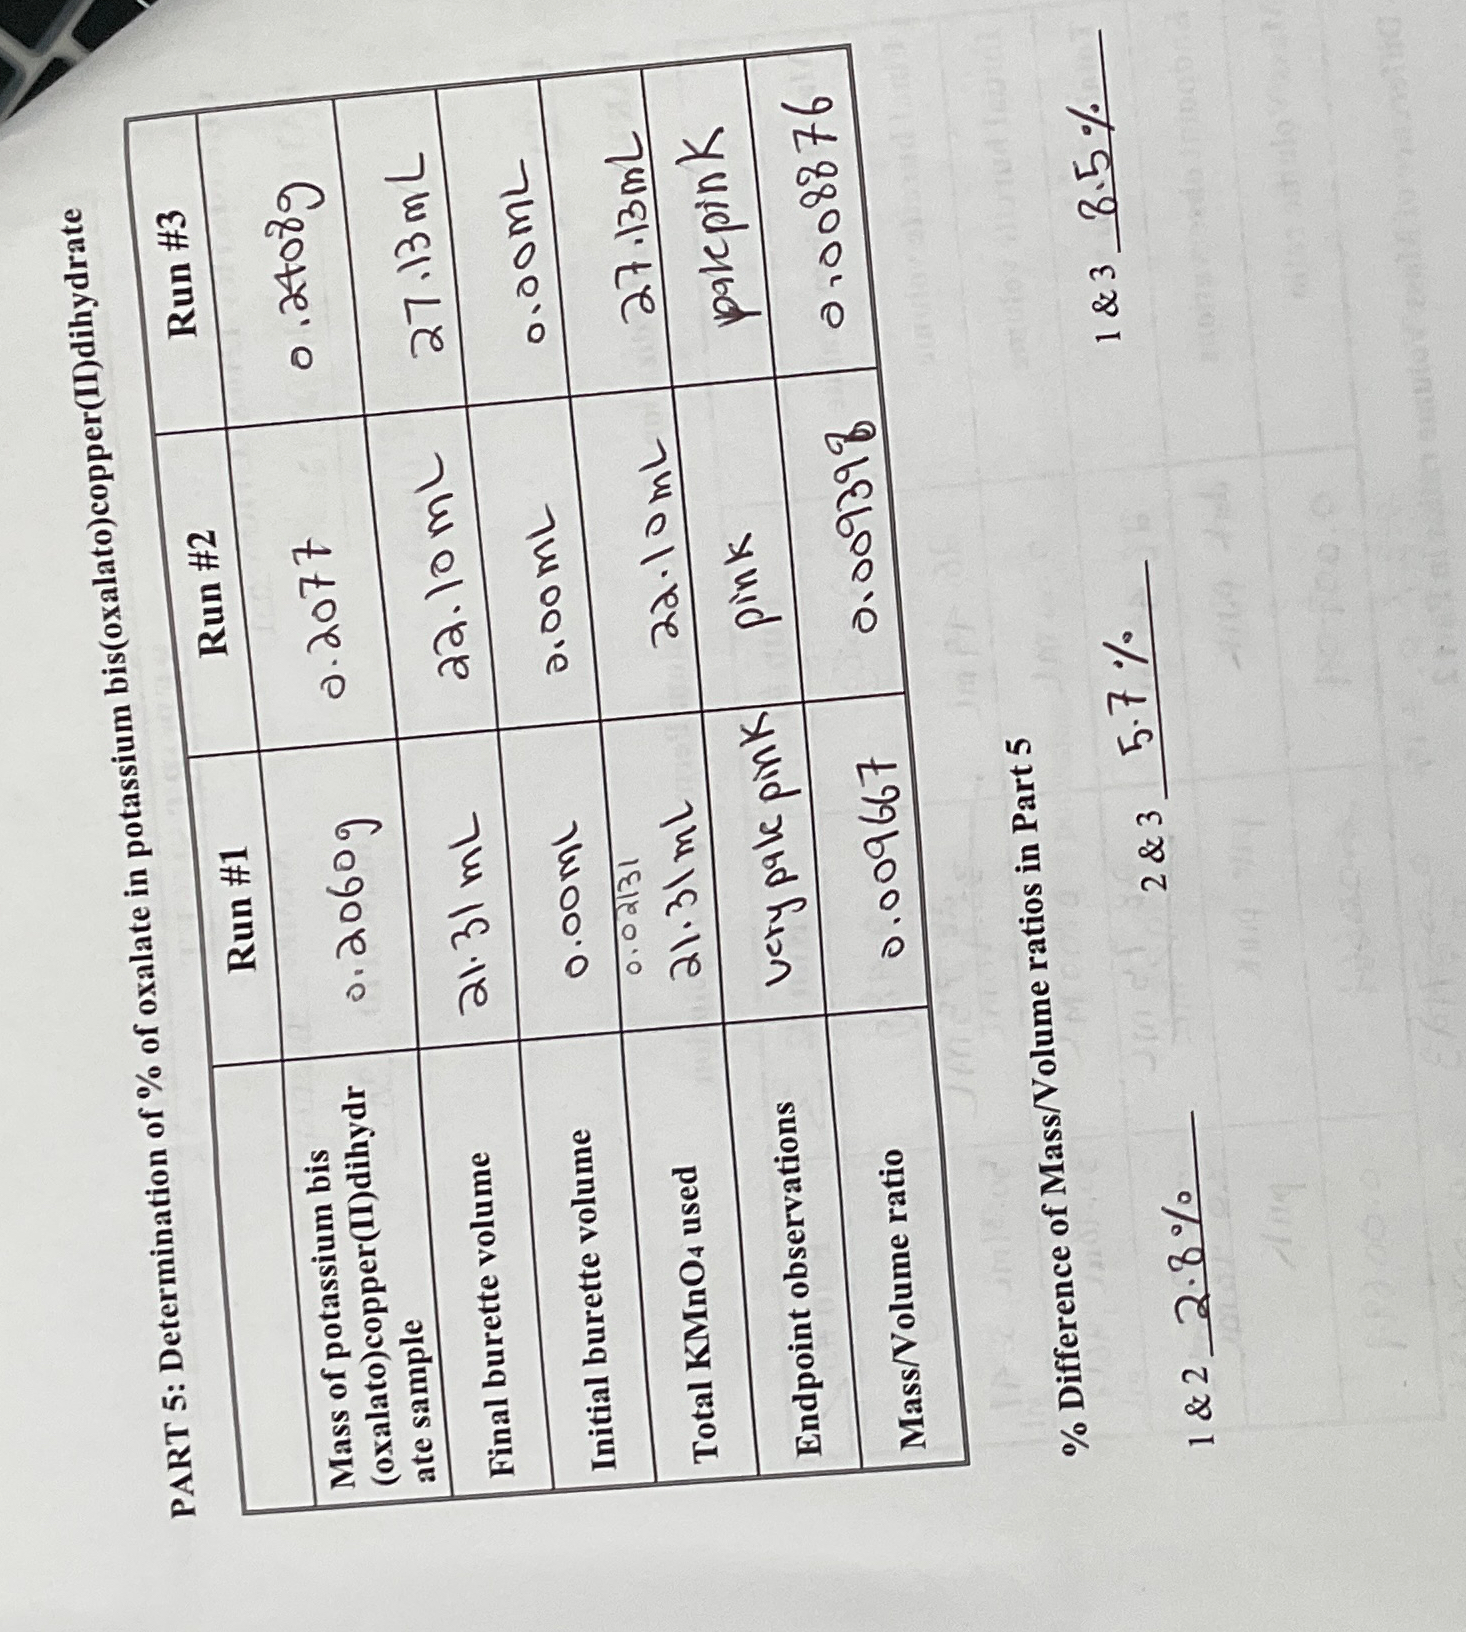 PART 5: Determination of % of oxalate in potassium bis(oxalato)copper(II)dihydrate
Run #1 Run #2 Run #3
Mass of potassium bis
(oxalato)copper(II)dihydr
ate sample
0.2060g 0.2077 0.2408g
Final burette volume 21.31 mL 22.10 mL 27.13 mL
Initial burette volume 0.00mL 0.00mL 0.00mL
0.02131
Total KMnO4 used 21.31 mL 22.10 mL 27.13 mL
Endpoint observations very pale pink pink pale pink
Mass/Volume ratio 0.009667 0.009398 0.008876
% Difference of Mass/Volume ratios in Part 5
1 & 2 2.8% 2 & 3 5.7% 1 & 3 8.5%